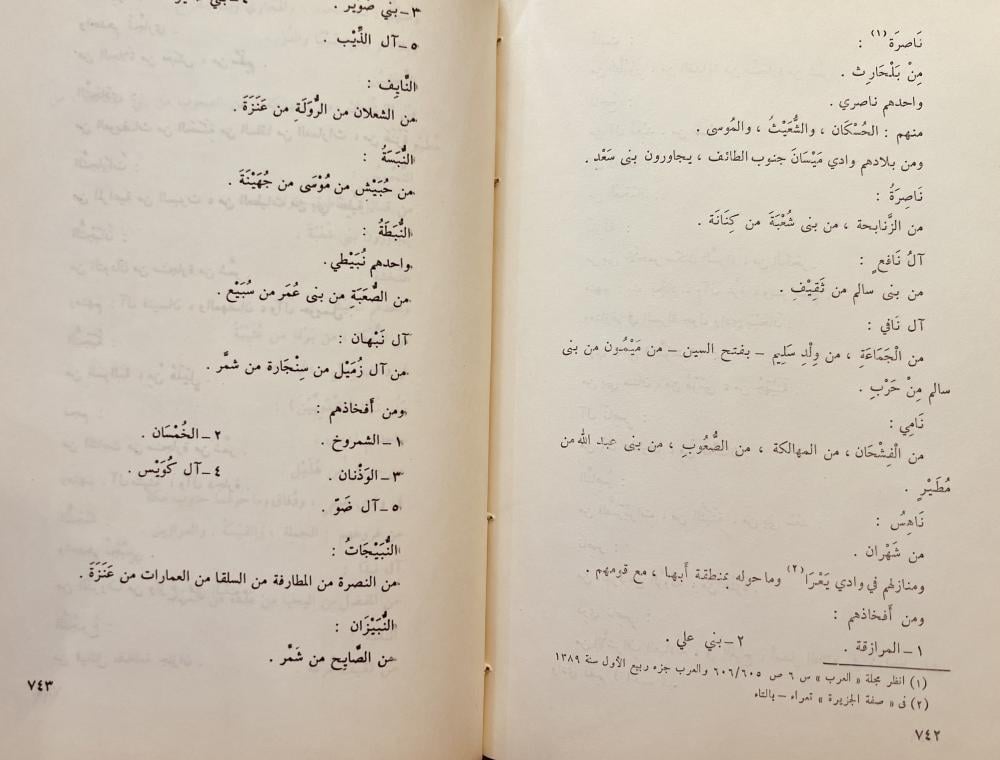 نَاصِرَة (١) :
مِنْ بَلْحَارِث .
واحدهم ناصري .
منهم : الحُسْكَان ، والشُّعَيْثُ ، والمُوسى .
ومن بلادهم وادي مَيْسَانَ جنوب الطائف ، يجاورون بنى سَعْدِ .
نَاصِرَةُ :
من الزَّنابحة ، من بنى شُعْبَةَ من كِنَانَة .
آلُ نَافعٍ :
من بنى سالم من ثَقِيْفٍ .
آل نَافي :
من الْجَمَاعَةِ ، من وِلْدِ سَلِيم – بفتح السين – من مَيْمُون من بنى
سالم مِنْ حَرْبٍ .
نَامِي :
من الْفِشْحَان ، من المهالكة ، من الصُّعُوبِ ، من بنى عبد الله من
مُطَيْرٍ .
نَاهِسُ :
من شَهْران .
ومنازلهم في وادي يَعْرَا (٢) وماحوله بمنطقة أَبها ، مع قومهم .
ومن أَفخاذهم :
١ – المرازقة . ٢ – بني علي .
(١) انظر مجلة « العرب » س ٦ ص ٦٠٦/٦٠٥ والعرب جزء ربيع الأول سنة ١٣٨٩
(٢) فى « صفة الجزيرة » تعراء – بالتاء
٧٤٢
٣ – بني صوير . ٤ – بني
٥ – آل الذِّيْب .
النَّايِف :
من الشعلان من الرُّوَلَةِ من عَنَزَةَ .
النُّبَسَةُ :
من حُبَيْش من مُوْسَى من جُهَيْنَةَ .
النُّبَطَةُ :
واحدهم نُبَيْطي .
من الصُّعَبَةِ من بنى عُمَر من سُبَيْع .
آل نَبْهان :
من آل زُمَيْل من سِنْجَارة من شمَّر .
ومن أَفخاذهم :
١ – الشمروخ . ٢ – الخُمْسَان .
٣ – الوَذْنان . ٤ – آل كُوَيْس .
٥ – آل ضَوّ .
النُّبَيْجَاتُ :
من النصرة من المطارفة من السلقا من العمارات من عَنَزَةَ .
النُّبَيْزَان :
من الصَّايح من شَمَّر .
٧٤٣